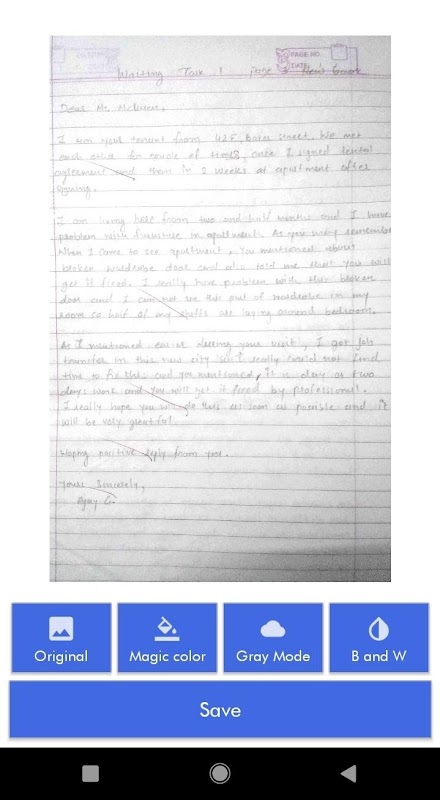 PAGE NO.
DATE:
Writing Task 1 page 3
Dear Mr. McLaren,
I am your tenant from 42F, Bates Street. We met
each other for couple of times, once I signed rental
agreement and then in 2 weeks at apartment after
signing.
I am living here from two and half months and I have
problem with furniture in apartment. As you may remember
When I came to see apartment, You mentioned about
broken wardrobe door and also told me that you will
get it fixed. I really have problem with this broken
door and I can not use this out of wardrobe in my
room so half of my are laying around bedroom.
As I mentioned earlier during your visit, I got job
transfer in this new city so I really could not find
time to fix this and you mentioned, it is day or two
days work and you will get it fixed by professional.
I really hope you will do this as soon as possible and it
will be very greatful.
Hoping positive reply from you.
Yours Sincerely,
Ajay G.
Original
Magic color
Gray Mode
B and W
Save